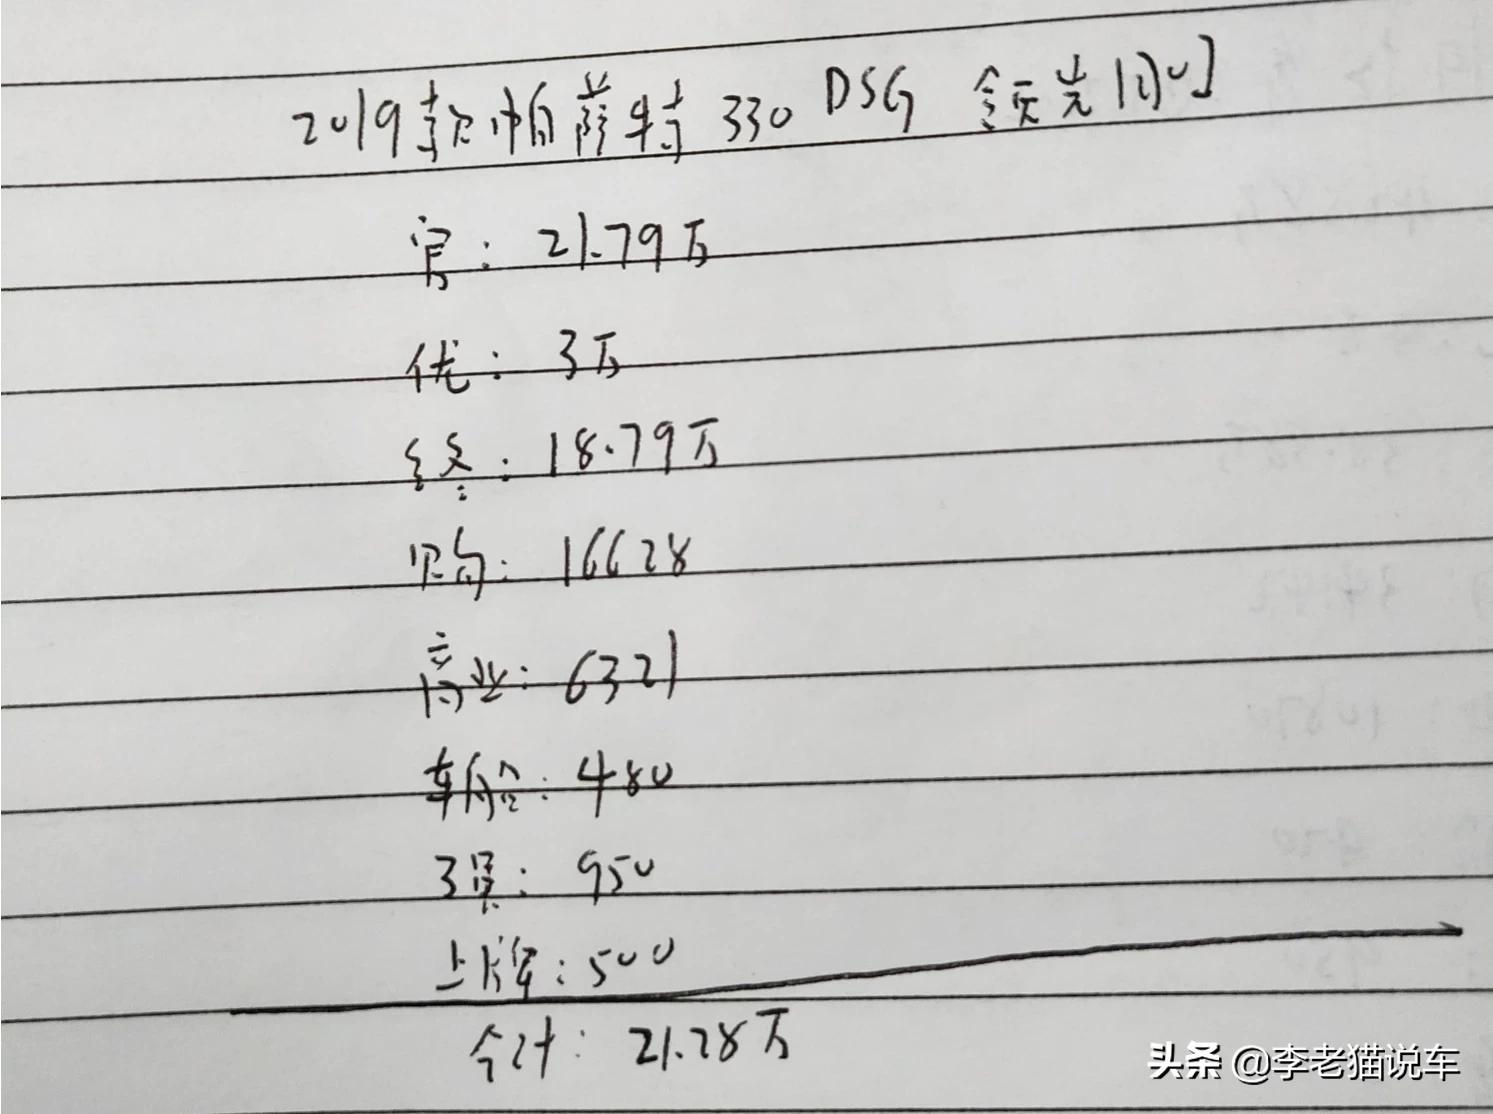 2019款帕萨特 330 DSG 领先[国V]
官：21.79万
优：3万
终：18.79万
购：16628
商业：6321
车船：480
交强：950
上牌：500
合计：21.28万
头条 @李老猫说车